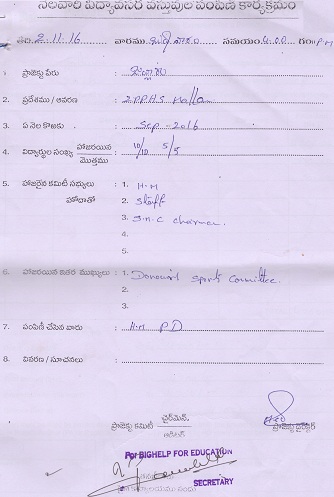 నెలవారి విద్యావసర వస్తువుల పంపిణి కార్యక్రమం
తేది: 2.11.16 వారము సమయం 4.00 గం॥ P.M
1. ప్రాజెక్టు పేరు :
2. ప్రదేశము / ఆవరణ : Z.P.P.H.S Halla
3. ఏ నెల కొఱకు : Sep - 2016
4. విద్యార్థుల సంఖ్య హాజరయిన / మొత్తము : 10/10 5/5
5. హాజరైన కమిటీ సభ్యులు : 1. H.M
హోదాతో 2. Staff
3. S.M.C Chairman
4.
5.
6. హాజరయిన ఇతర ముఖ్యులు : 1. Sports Committee.
2.
3.
7. పంపిణీ చేసిన వారు : H.M P.D
8. వివరణ / సూచనలు :
ప్రాజెక్టు కమిటీ చైర్మెన్. ప్రాజెక్టు డైరెక్టర్
For BIGHELP FOR EDUCATION
SECRETARY